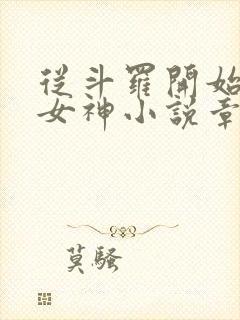 從斗羅開始
女神小説章
莫騷